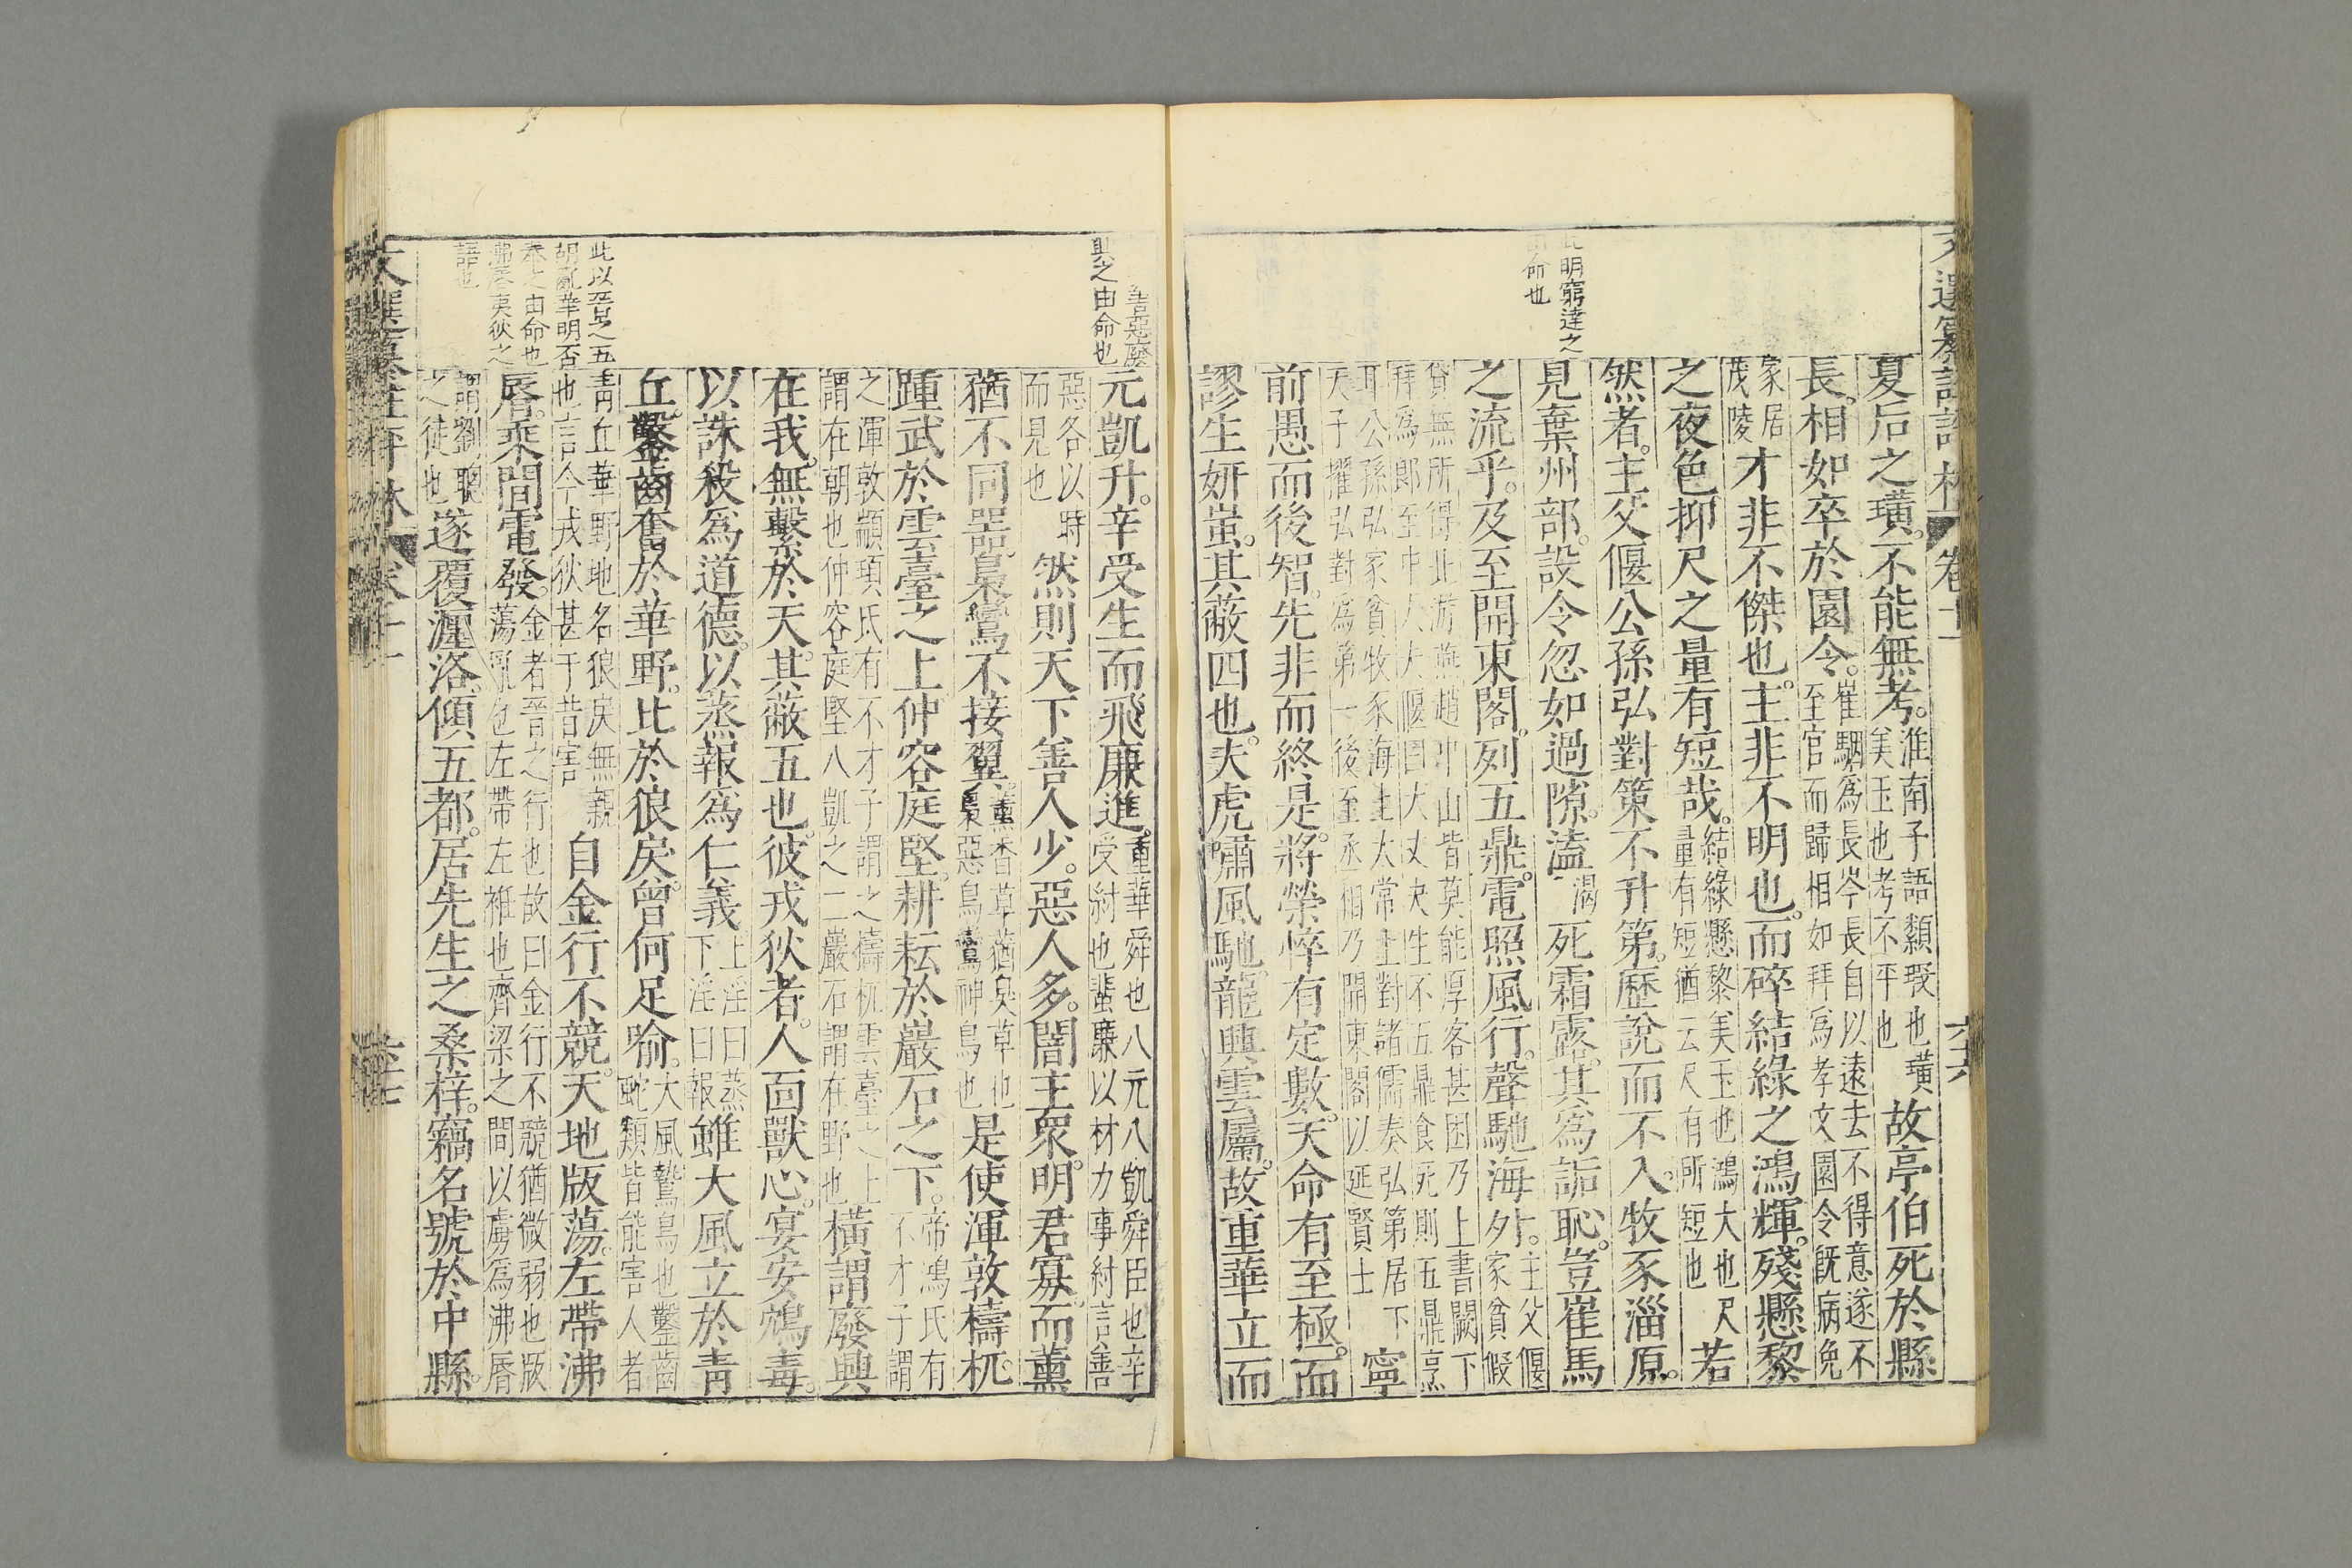 夏后之璜。不能無考。淮南子語纇瑕也璜美玉也考不平也故亭伯死於縣
長。相如卒於園令。崔駰爲長岑長自以遠去不得意遂不至官而歸相如拜爲孝文園令旣病免
家居茂陵才非不傑也。主非不明也。而碎結綠之鴻輝。殘懸黎
之夜色抑尺之量有短哉。結綠懸黎美玉也鴻大也尺量有短猶云尺有所短也若
然者。主父偃公孫弘對策不升第。歷說而不入。牧豕淄原。
見棄州部。設令忽如過隙。溘渴死霜露。其爲詬恥。豈崔馬
之流乎。及至開東閣。列五鼎。電照風行。聲馳海外。主父偃家貧假
貸無所得北游燕趙中山皆莫能厚客甚困乃上書闕下拜爲郎至中大夫偃曰大丈夫生不五鼎食死則五鼎烹
耳公孫弘家貧牧豕海上太常上對諸儒奏弘第居下天子擢弘對爲第一後至丞相乃開東閣以延賢士寧
前愚而後智。先非而終是。將榮悴有定數。天命有至極。而
謬生妍蚩。其蔽四也。夫虎嘯風馳。龍興雲屬。故重華立而
明窮達之
命也
卷十一
六六
元凱升。辛受生而飛廉進。重華舜也八元八凱舜臣也辛受紂也蜚廉以材力事紂言善
惡各以時而見也然則天下善人少。惡人多。闇主衆。明君寡。而薰
猶不同器。梟鸞不接翼。薰香草蕕臭草也梟惡鳥鸞神鳥也是使渾敦檮杌。
踵武於雲臺之上仲容庭堅。耕耘於巖石之下。帝鴻氏有不才子謂
之渾敦顓頊氏有不才子謂之檮杌雲臺之上謂在朝也仲容庭堅八凱之二巖石謂在野也橫謂廢興
在我。無繫於天。其蔽五也。彼戎狄者。人面獸心。宴安鴆毒。
以誅殺爲道德。以蒸報爲仁義上淫曰蒸下淫曰報雖大風立於靑
丘。鑿齒奮於華野。比於狼戾。曾何足喻。大風鷙鳥也鑿齒蛇類皆能害人者
靑丘華野地名狼戾無親也言今戎狄甚于昔害自金行不競。天地版蕩。左帶沸
脣。乘間電發。金者晉之行也故曰金行不競猶微弱也版蕩亂也左帶左衽也齊梁之間以虜爲沸脣
謂劉聰之徒也遂覆瀍洛。傾五都。居先生之桑梓。竊名號於中縣。
善惡廢
興之由命也
此以
胡亂華明否
泰之由命也
沸脣夷狄之
語也